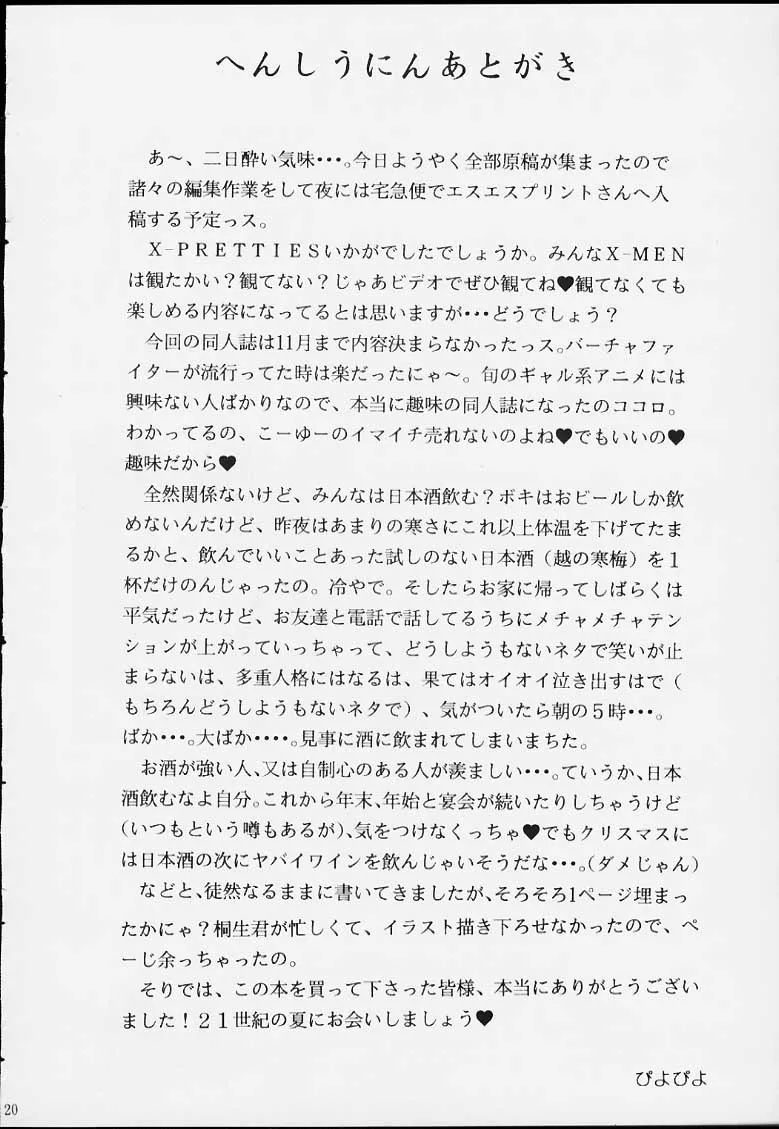 へんしうにんあとがき
あ～、二日酔い気味･･･。今日ようやく全部原稿が集まったので
諸々の編集作業をして夜には宅急便でエスエスプリントさんへ入
稿する予定っス。
X-PRETTIESいかがでしたでしょうか。みんなX-MEN
は観たかい？観てない？じゃあビデオでぜひ観てね♥観てなくても
楽しめる内容になってるとは思いますが･･･どうでしょう？
今回の同人誌は11月まで内容決まらなかったっス。バーチャファ
イターが流行ってた時は楽だったにゃ～。旬のギャル系アニメには
興味ない人ばかりなので、本当に趣味の同人誌になったのココロ。
わかってるの、こーゆーのイマイチ売れないのよね♥でもいいの♥
趣味だから♥
全然関係ないけど、みんなは日本酒飲む？ボキはおビールしか飲
めないんだけど、昨夜はあまりの寒さにこれ以上体温を下げてたま
るかと、飲んでいいことあった試しのない日本酒（越の寒梅）を１
杯だけのんじゃったの。冷やで。そしたらお家に帰ってしばらくは
平気だったけど、お友達と電話で話してるうちにメチャメチャテン
ションが上がっていっちゃって、どうしようもないネタで笑いが止
まらないは、多重人格にはなるは、果てはオイオイ泣き出すはで（
もちろんどうしようもないネタで）、気がついたら朝の５時･･･。
ばか･･･。大ばか････。見事に酒に飲まれてしまいまちた。
お酒が強い人、又は自制心のある人が羨ましい･･･。ていうか、日本
酒飲むなよ自分。これから年末、年始と宴会が続いたりしちゃうけど
(いつもという噂もあるが)、気をつけなくっちゃ♥でもクリスマスに
は日本酒の次にヤバイワインを飲んじゃいそうだな･･･。(ダメじゃん)
などと、徒然なるままに書いてきましたが、そろそろ1ページ埋まっ
たかにゃ？桐生君が忙しくて、イラスト描き下ろせなかったので、ペ
ーじ余っちゃったの。
そりでは、この本を買って下さった皆様、本当にありがとうござい
ました！２１世紀の夏にお会いしましょう♥
ぴよぴよ
20